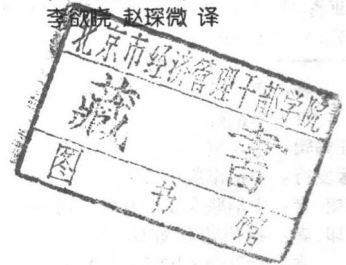 李欲晓 赵琛微 译
北京市经济管理干部学院
藏 书
图 书 馆